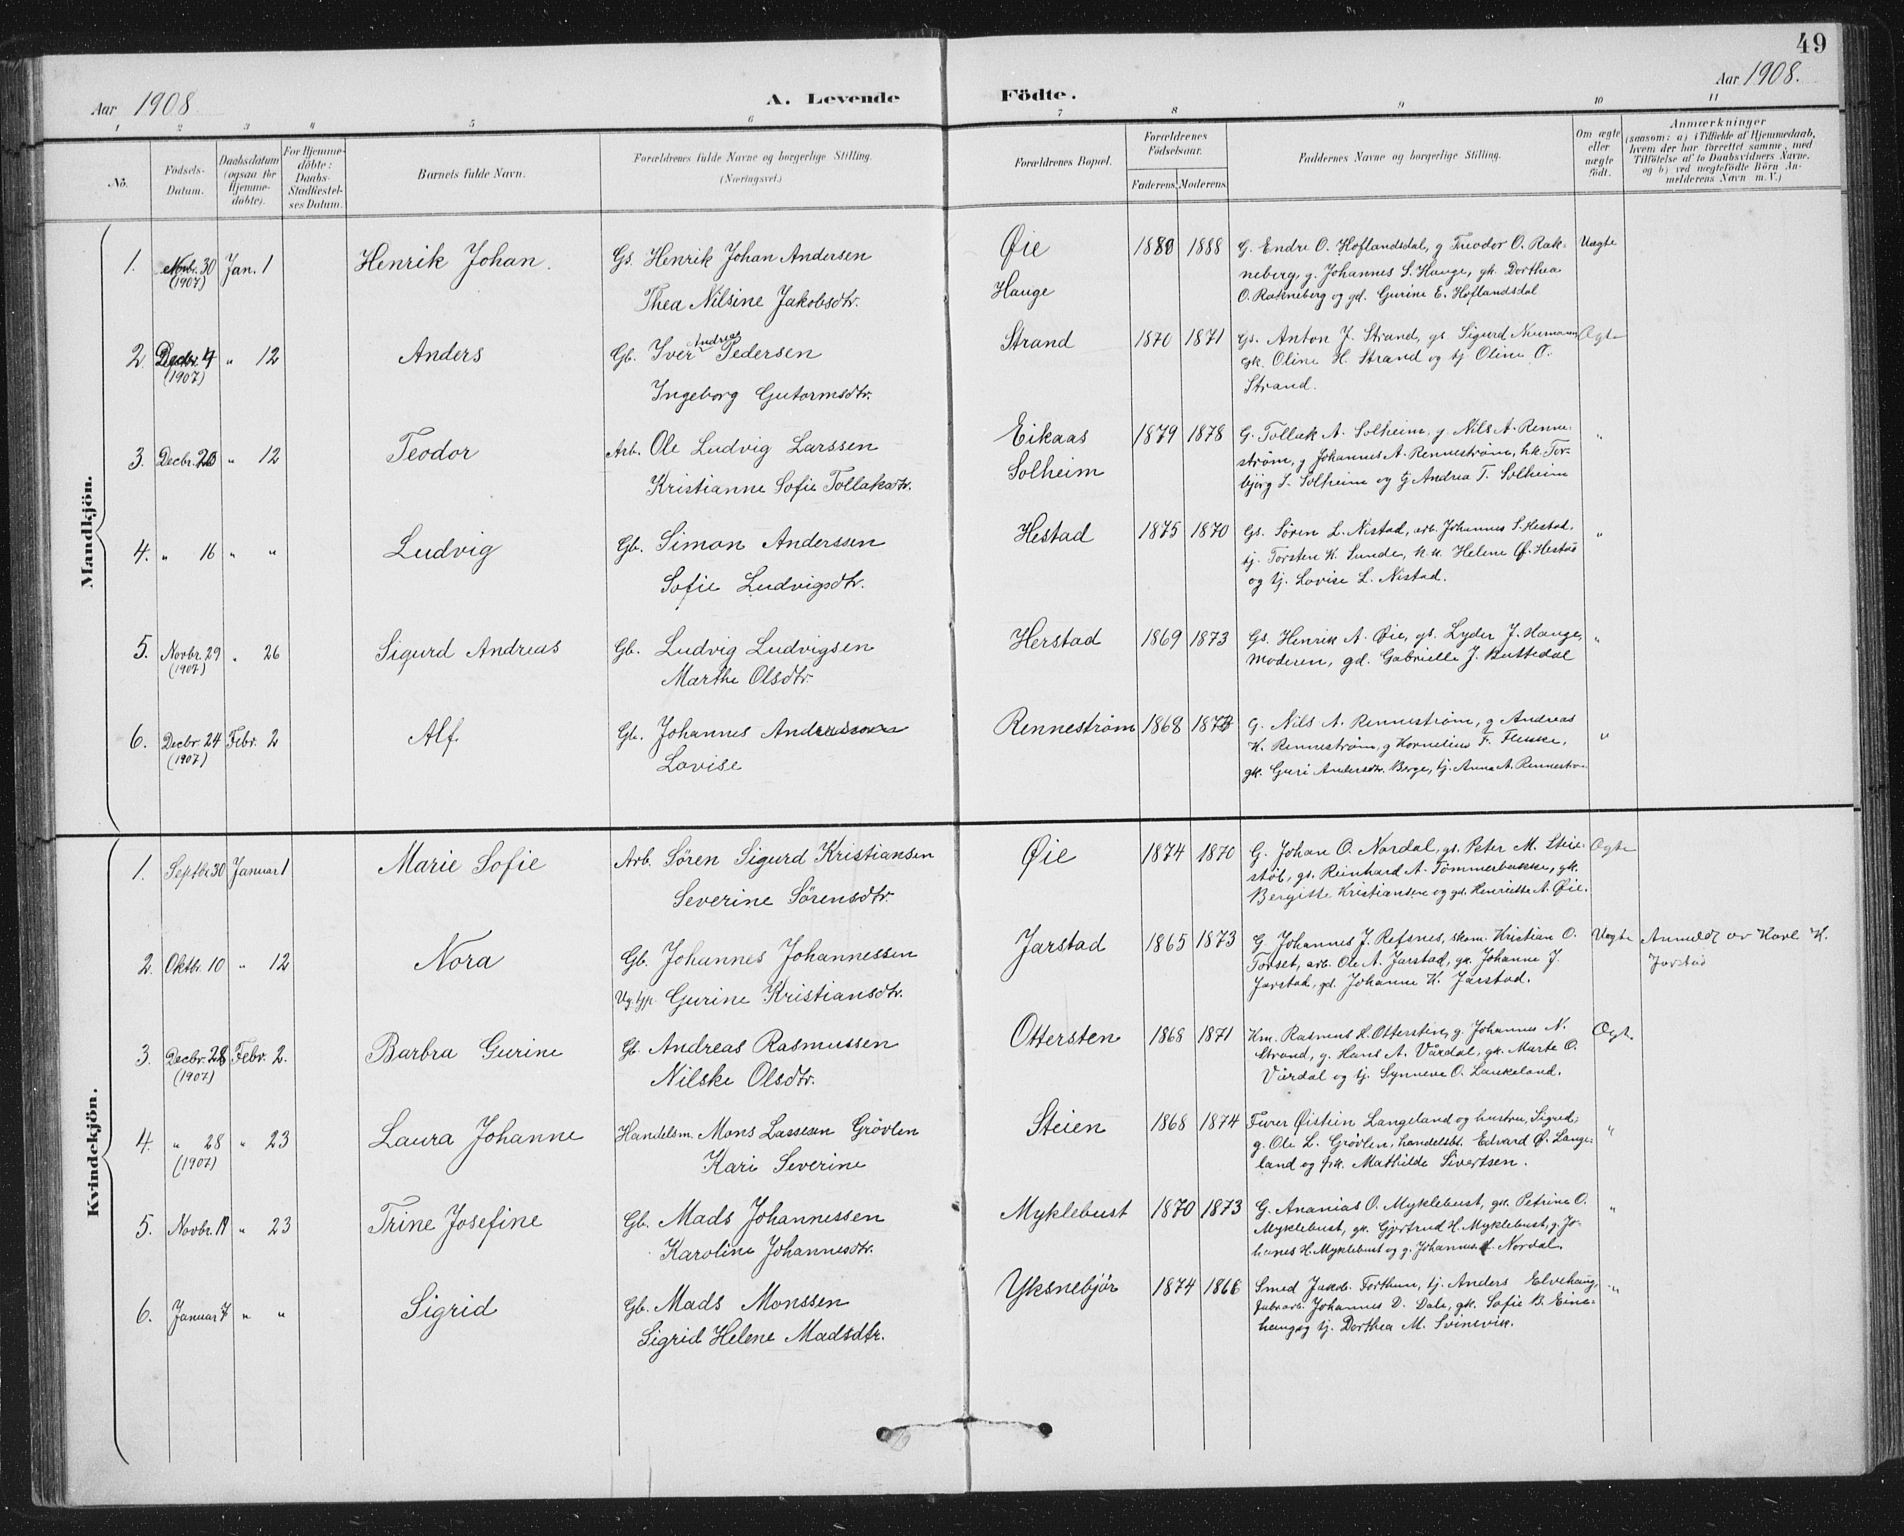 49
Aar 1908.
A. Levende
Födte.
Aar 1908.
1 2 3 4 5 6 7 8 9 10 11
No.
Födsels-
Datum.
Daabsdatum
(ogsaa for
Hjemme-
döbte).
For Hjemme-
döbte:
Daabs-
Stadfæstel-
ses Datum.
Barnets fulde Navn.
Forældrenes fulde Navne og borgerlige Stilling.
(Næringsvei.)
Forældrenes Bopæl.
Forældrenes
Födselsaar.
Faderens. Moderens.
Faddernes Navne og borgerlige Stilling.
Om ægte
eller
uægte
födt.
Anmærkninger
(saasom: a) i Tilfælde af Hjemmedaab,
hvem der har forrettet samme, med
Tilföielse af to Daabsvidners Navne,
og b) ved uægtefödte Börn An-
melderens Navn m. V.)
Mandkjön.
1. Novbr. 30 Jan. 1 Henrik Johan. Gs. Henrik Johan Andersen Øie 1880 1888 G. Endre O. Hoflandsdal, g Theodor O. Rak- Uægte
(1907) Thea Nilsine Jakobsdtr. Hauge neberg, g. Johannes S. Hauge, gk. Dorthea
O. Rakneberg og gd. Gurine E. Hoflandsdal
2. Decbr. 4 " 12 Anders Gb. Iver Andreas Pedersen Strand 1870 1871 Gs. Anton J. Strand, gs Sigurd Neumann Ægte
(1907) Ingeborg Gutormsdtr. gk. Oline H. Strand og tj Oline O.
Strand.
3. Decbr. 20 " 12 Teodor Arb. Ole Ludvig Larssen Eikaas 1879 1878 G. Tollak A. Solheim, g. Nils A. Renne- "
Kristianne Sofie Tollaksdtr. Solheim strøm, g Johannes A. Rennestrøm, hk. Tor-
bjørg S. Solheim og tj Andrea T. Solheim
4. " 16 " " Ludvig Gb. Simon Anderssen Hestad 1875 1870 Gs. Søren L. Nistad, arb. Johannes S. Hestad, "
Sofie Ludvigsdtr. tj. Torsten K. Sunde, hk. Helene Ø. Hestad
og tj. Lovise L. Nistad.
5. Novbr. 29 " 26 Sigurd Andreas Gb. Ludvig Ludvigsen Herstad 1869 1873 Gs. Henrik A. Øie, gs. Lyder J. Hauge, "
(1907) Marthe Olsdtr. Moderen, gd. Gabrielle J. Buttedal
6. Decbr. 24 Febr. 2 Alf. Gb. Johannes Anderssen Rennestrøm 1868 1873 G. Nils A. Rennestrøm, g Andreas "
(1907) Lovise K. Rennestrøm, g Kornelius F. Flekke,
gk. Guri Andersdtr. Berge, tj. Anna A. Rennestrø-
Kvindekjön.
1. Septbr 30 Januar 1 Marie Sofie Arb. Søren Sigurd Kristiansen Øie 1874 1870 G. Johan O. Nordal, gs. Peter M. Stei- Ægte
Severine Sørensdtr. støl, gs. Reinhard A. Tömmerbakke, gk.
Bergitte Kristiansen og gd. Henriette A. Øie.
2. Oktbr. 10 " 12 Nora Gb. Johannes Johannessen Jarstad 1865 1873 G Johannes J. Refsnes, skom. Kristian O. Uægte Anmeldt av Karl K.
Ug. tjp. Gurine Kristiansdtr. Torset, arb. Ole A. Jarstad, gk. Johanne J. Jarstad
Jarstad, gd. Johanne K. Jarstad.
3. Decbr. 28 Febr. 2. Barbra Gurine Gb. Andreas Rasmussen Ottersten 1868 1871 Km. Rasmus R. Ottersten, g. Johannes N. Ægte
(1907) Nilske Olsdtr. Strand, g. Hans A. Vårdal, gk. Marte O.
Vårdal og tj. Synneve O. Laukeland.
4. " 28 " 23 Laura Johanne Handelsm. Mons Lassesen Grøvlen Steien 1868 1874 Furer Øistein Langeland og hustru Sigrid, "
(1907) Kari Severine g. Ole L. Grøvlen, handelsbt. Edvard Ø. Lange-
land og frk. Mathilde Sivertsen.
5. Novbr. 19 " 23 Trine Josefine Gb. Mads Johannessen Myklebust 1870 1873 G. Ananias O. Myklebust, gk. Petrine O. "
Karoline Johannesdtr. Myklebust, gk. Gjertrud H. Myklebust, g. Jo-
hanes H. Myklebust og g. Johannes Nordal.
6. Januar 7 " " Sigrid Gb. Mads Monssen Yksnebjør 1874 1868 Smed Jakob Forthun, tj. Anders Elvehaug, "
Sigrid Helene Madsdtr. Johannes D. Dale, gk. Sofie B. Eine-
haug og tj. Dorthea M. Svinevik.